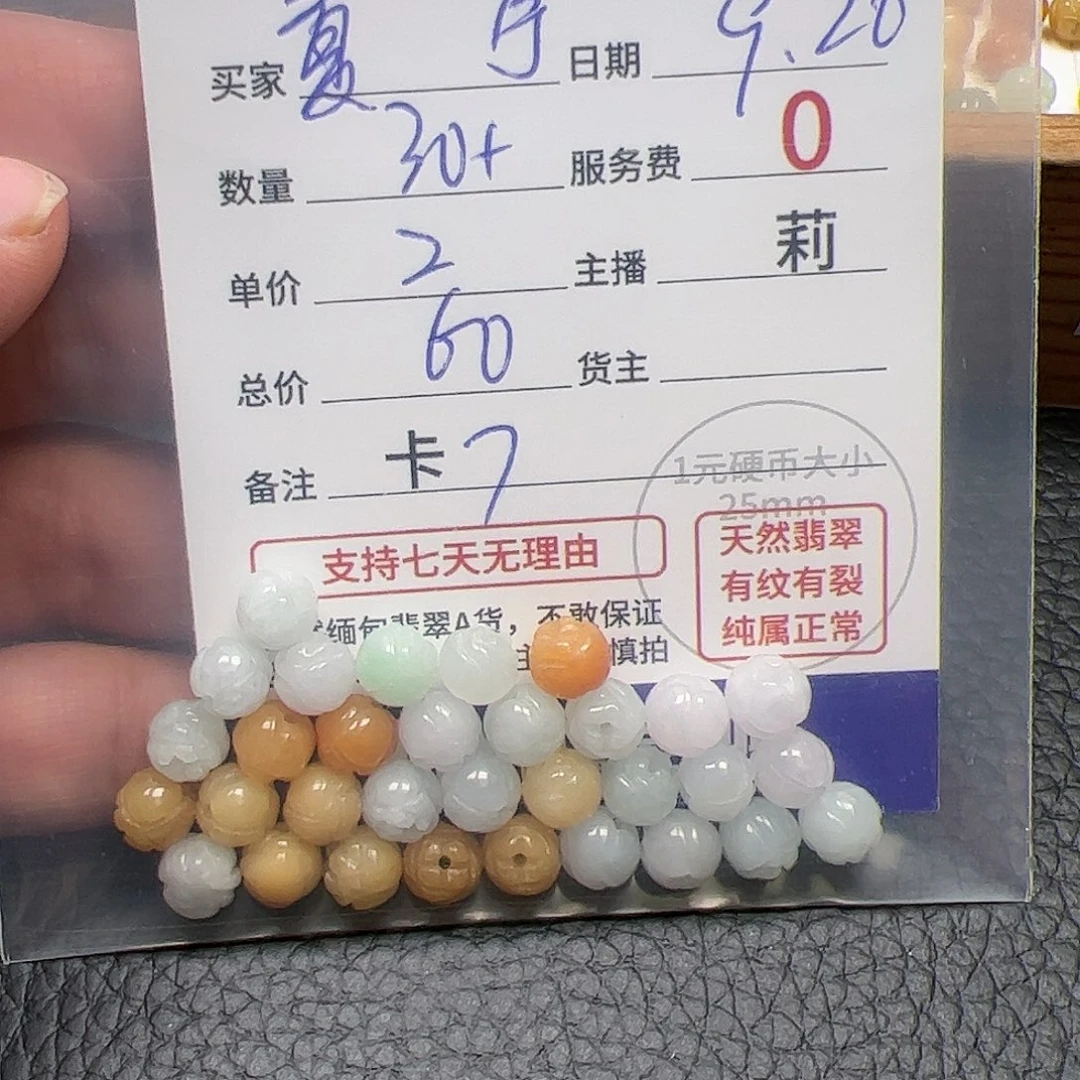 买家 夏 日期 9.20
数量 30+ 服务费 0
单价 2 主播 莉
总价 60 货主
备注 卡7
1元硬币大小
25mm
支持七天无理由
天然翡翠
有纹有裂
纯属正常
缅甸翡翠A货，不敢保证
慎拍